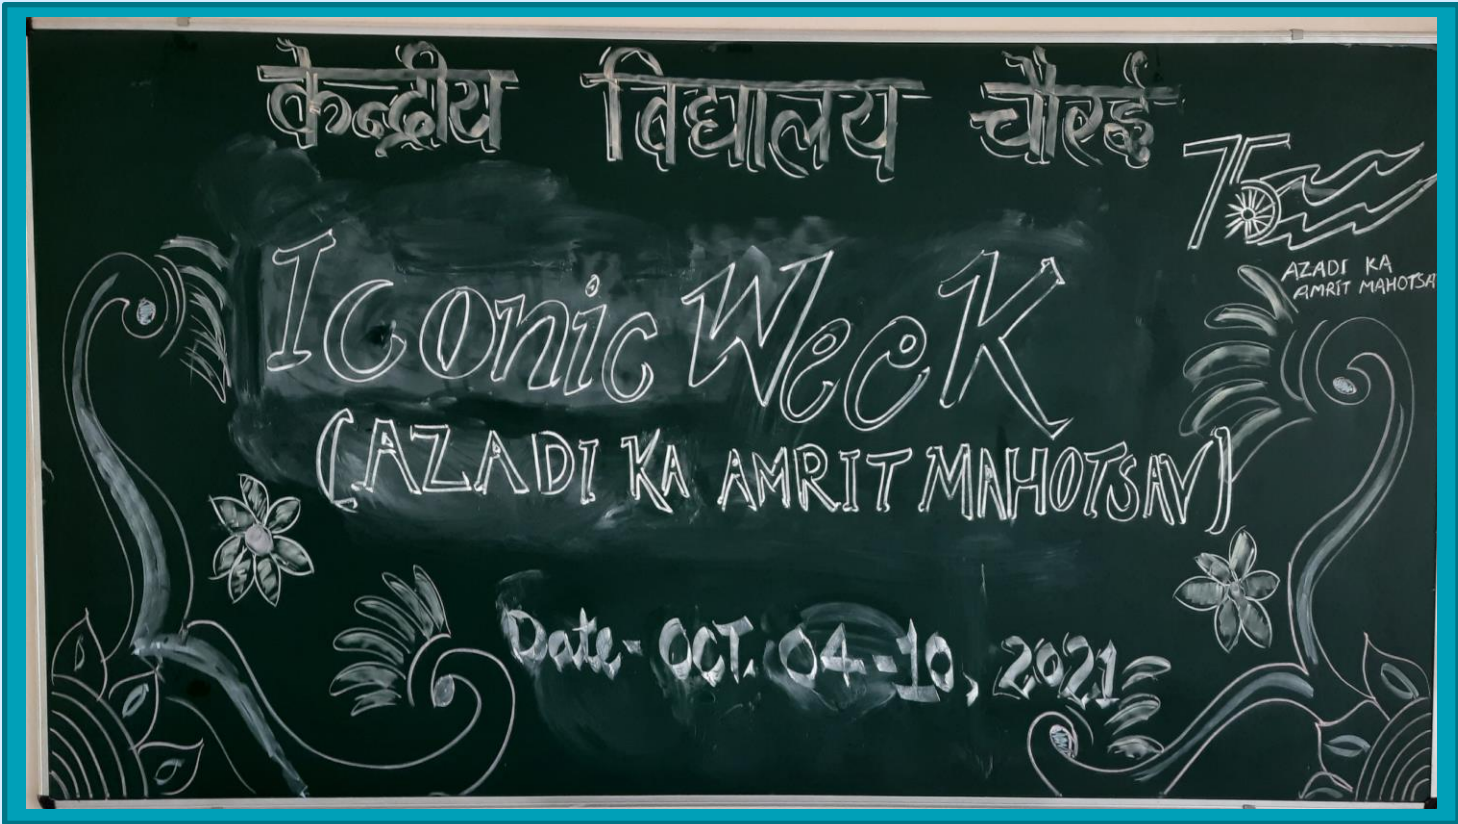 केन्द्रीय बिद्यालय चौरई
75
AZADI KA
AMRIT MAHOTSA
Iconic Week
(AZADI KA AMRIT MAHOTSAV)
Date- OCT. 04-10, 2021